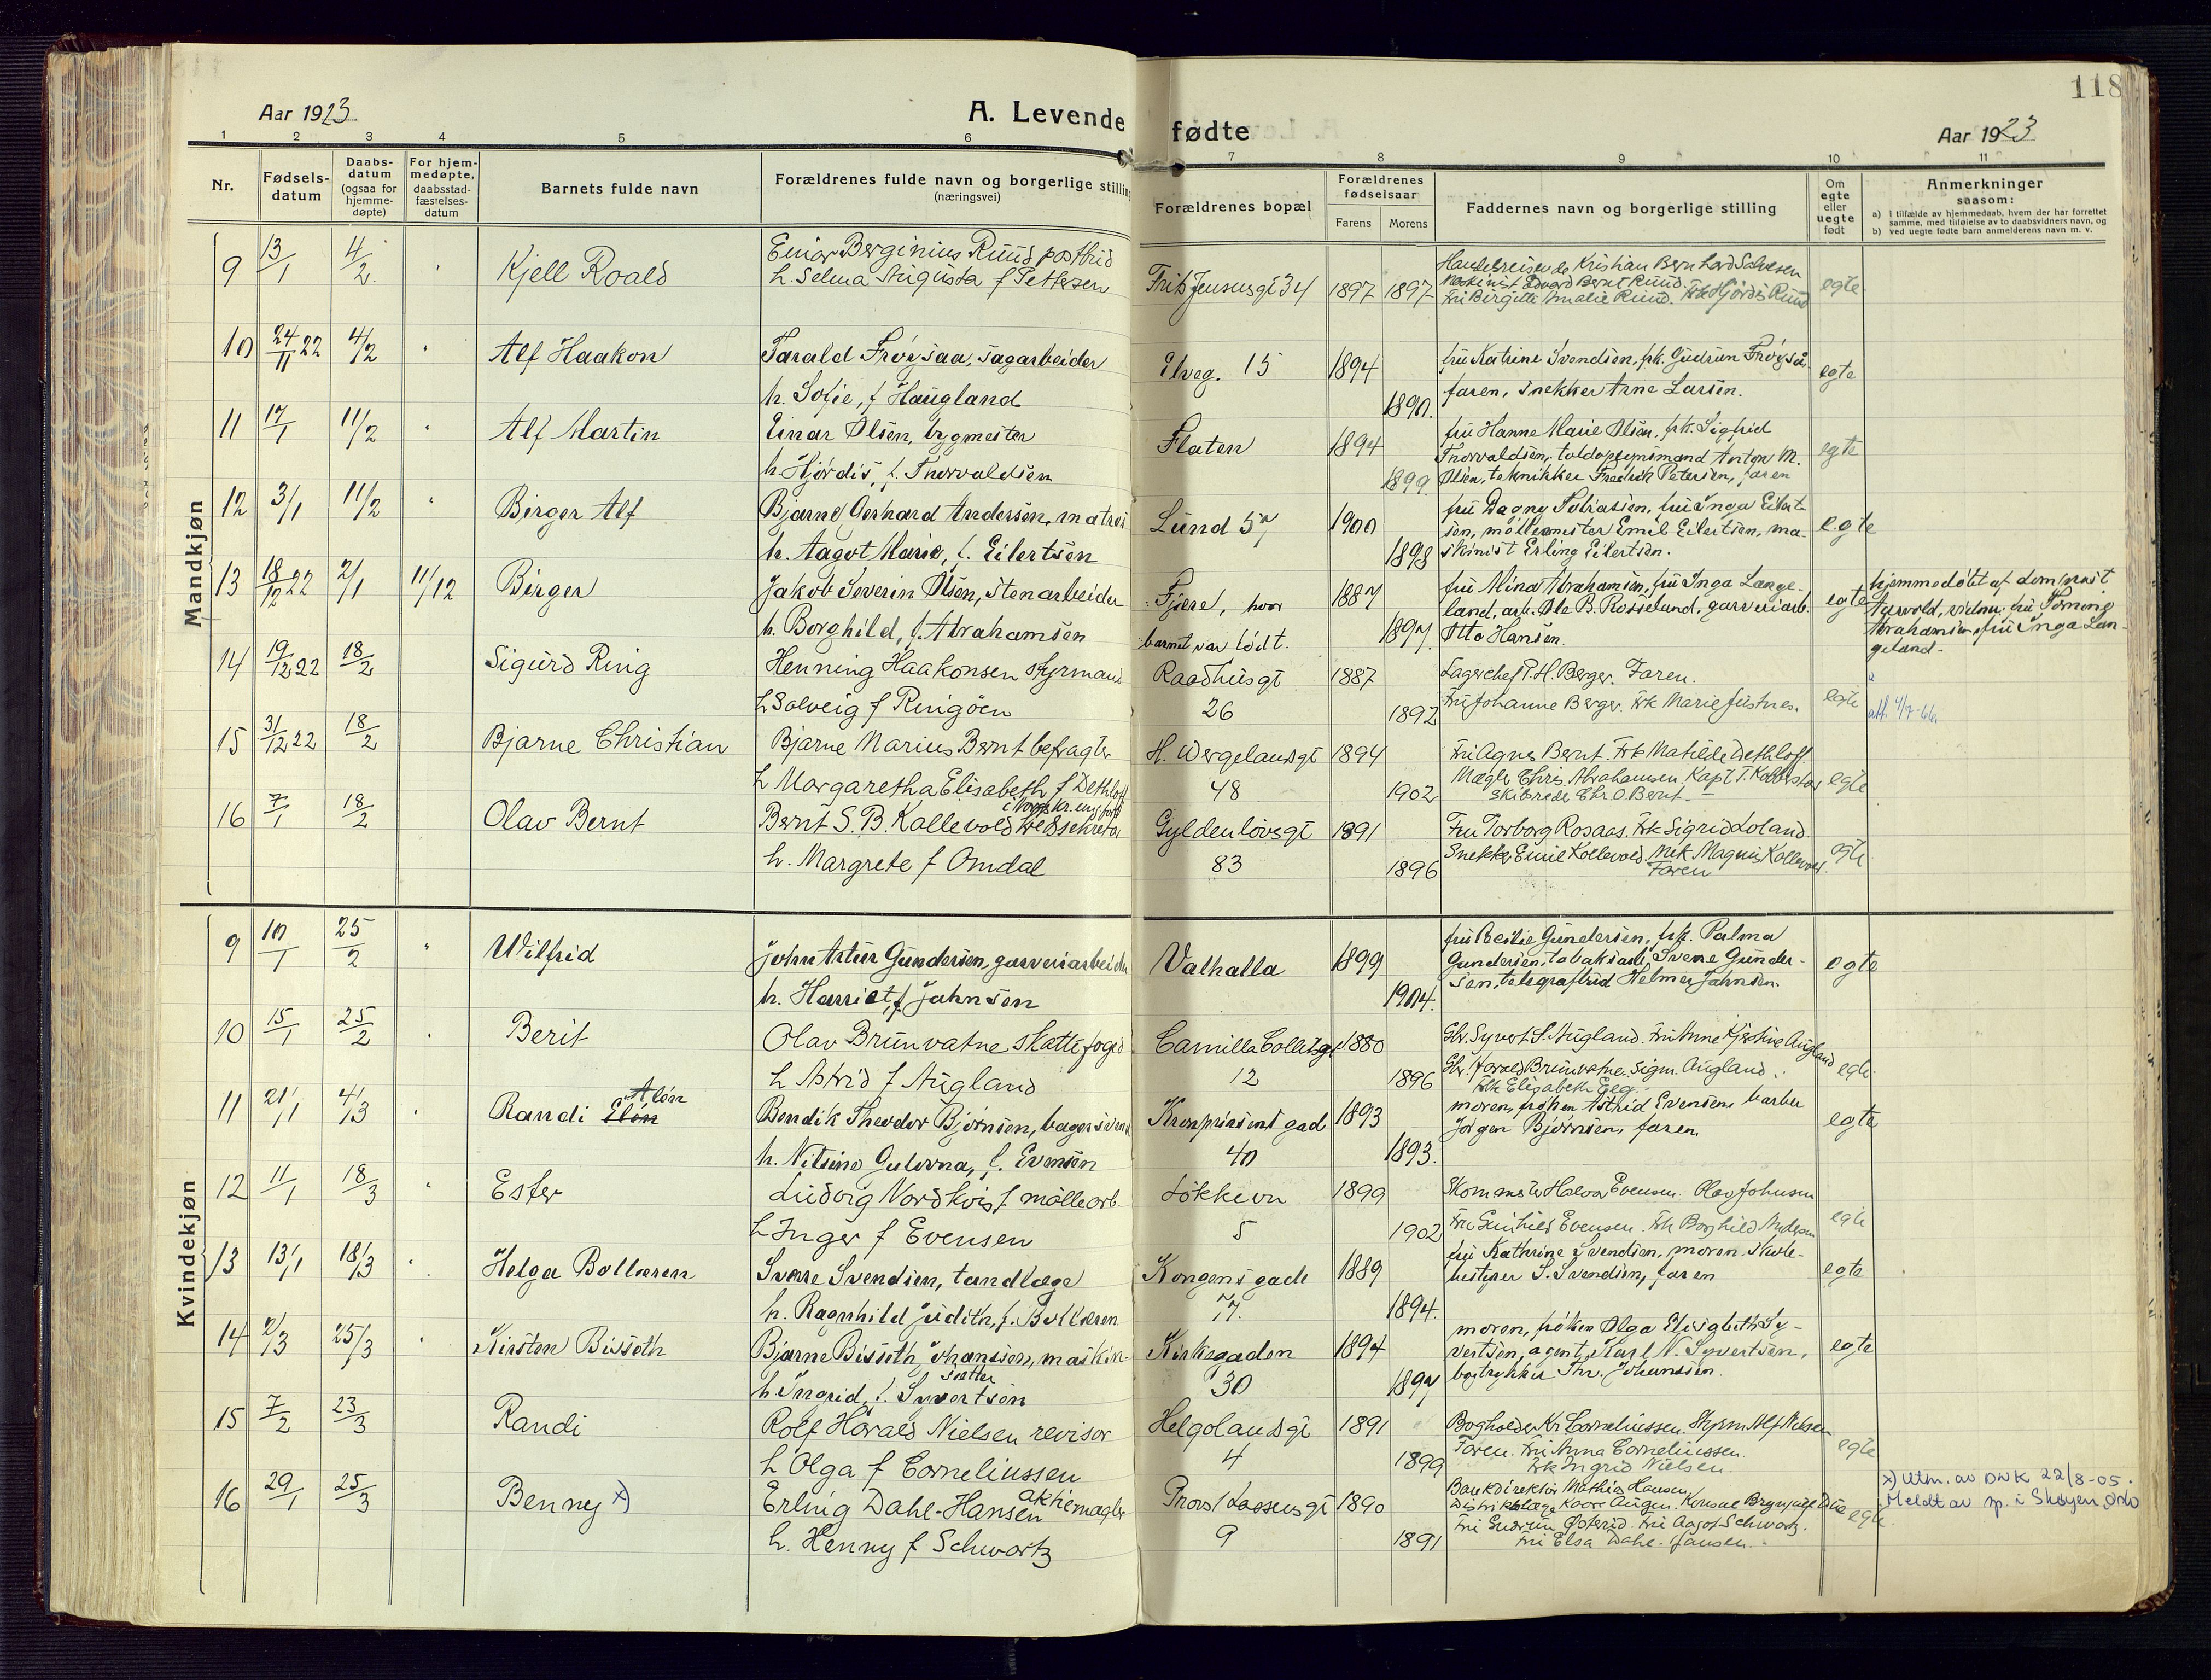 118
Aar 1923
A. Levende fødte
Aar 1923
1 2 3 4 5 6 7 8 9 10 11
Nr.
Fødsels-
datum
Daabs-
datum
(ogsaa for
hjemme-
døpte)
For hjem-
medøpte,
daabsstad-
fæstelses-
datum
Barnets fulde navn
Forældrenes fulde navn og borgerlige stilling
(næringsvei)
Forældrenes bopæl
Forældrenes
fødselsaar
Farens Morens
Faddernes navn og borgerlige stilling
Om
egte
eller
uegte
født
Anmerkninger
saasom:
a) I tilfælde av hjemmedaab, hvem der har forrettet
samme, med tilføielse av to daabsvidners navn, og
b) ved uegte fødte barn anmelderens navn m. v.
Mandkjøn
9 13/1 4/2 Kjell Roald
Einar Berginius Ruud postbud
h. Selma Augusta f Pettersen
Fritz Jensensgt 34 1897 1897
Handelsreisende Kristian Bernhard Salvesen
Maskinist Edvard Bernt Ruud.
Fru Birgitte Amalie Ruud. Frk Hjørdis Ruud
egte
10 24/11 22 4/2 Alf Haakon
Tarald Frøysaa, sagarbeider
h. Sofie, f Haugland
Elveg. 15 1894 1890.
fru Katrine Svendsen, frk. Gudrun Frøyså
faren, snekker Arne Larsen.
egte
11 17/1 11/2 Alf Martin
Einar Olsen, bygmester
h. Hjørdis, f. Thorvaldsen
Flaten 1894 1899.
fru Hanne Marie Olsen, frk. Sigfrid
Thorvaldsen, toldopsynsmand Anton M.
Olsen, tekniker Fredrik Petersen, faren
egte
12 3/1 11/2 Birger Alf
Bjarne Gerhard Andersen, matros
h. Aagot Marie, f. Eilertsen
Lund 57 1900 1898
fru Dagny Tobiassen, fru Inga Eilert-
sen, møllemester Emil Eilertsen, ma-
skinist Erling Eilertsen.
egte
13 18/12 22 2/1 11/12 Birger
Jakob Severin Olsen, stenarbeider
h. Borghild, f. Abrahamsen
Fjære, hvor
barnet var født.
1887 1897.
fru Mina Abrahamsen, fru Inga Lange-
land, arb. Ole B. Rosseland, garveriarb.
Otto Hansen.
egte
hjemmedøbt af domprost
Aarvold, vidner: fru
Abrahamsen, fru Inga Lan-
geland.
14 19/12 22 18/2 Sigurd Ring
Henning Haakonsen styrmand
h Solveig f Ringöen
Raadhusgt
26
1887 1892
Lagerchef P. H. Berger. Faren.
Fru Johanne Berger. Frk Marie Justnes.
egte
att. 4/7-66.
15 31/12 22 18/2 Bjarne Christian
Bjarne Marius Bernt befragter
h Margaretha Elisabeth f Dethloff
H. Wergelandsgt
48
1894 1902
Fru Agnes Bernt. Frk Matilde Dethloff
Mægler Chris. Abrahamsen. Kapt T.
Skibsreder Chr. O. Bernt.
egte
16 7/1 18/2 Olav Bernt
Bernt S. B. Kallevold
h. Margrete f Omdal
Gyldenløvsgt
83
1891 1896
Fru Torborg Rosaas. Frk Sigrid Loland.
Snekker Emil Kallevold. Mek Magnus Kallevold.
Faren
egte
Kvindekjøn
9 10/1 25/2 Wilfrid
John Artur Gundersen, garveriarbeider
h. Harriet, f Jahnsen
Valhalla 1899 1904.
fru Gundersen, frk. Palma
Gundersen, tobaksarb. Svene Gunder-
sen, telegrafbud Helmer Jahnsen.
egte
10 15/1 25/2 Berit
Olav Brunvatne skattefoged
h Astrid f Augland
Camilla Colletsgt
12
1880 1896
Gbr. Syvert S. Augland. Fru Anne Kjerstine Augland
Gbr. Harald Brunvatne. Sigm. Augland.
Frk Elisabeth Eeg.
egte
11 21/1 4/3 Randi Elön Alön
Bendik Theodor Bjørnsen, bagersvend
h. Nitsine Gulovna, f. Evensen
Kronprinsens gade
40
1893 1893.
moren, frøken Astrid Evensen, barber
Jörgen Bjørnsen, faren
egte
12 11/1 18/3 Ester
Ludvig Nordkvist møllearb.
h Inger f Evensen
Løkkevn
5
1899 1902
Skommster Halvor Evensen. Olav Johnsen
Fru Gunhild Evensen. Frk Borghild Andersen
egte
13 13/1 18/3 Helga Bollæren
Sverre Svendsen, tandlæge
h. Ragnhild Judith, f. Bollæren
Kongens gade
77.
1889 1894.
fru Kathrine Svendsen, moren. Skole-
bestyrer S. Svendsen, faren
egte
14 2/3 25/3 Kirsten Bisseth
Bjarne Bisseth Johanssen, maskin-
sætter
h. Ingrid, f. Syvertsen
Kirkegaden
30
1894 1897
moren, frøken Olga Elisabeth Sy-
vertsen, agent Karl N. Syvertsen,
bogtrykker Thv. Johanssen.
egte
15 7/2 23/3 Randi
Rolf Harald Nielsen revisor
h Olga f Corneliussen
Helgolandsgt
4
1891 1899
Bogholder Kr Corneliussen. Styrm Alf Nielsen
Faren. Fru Anna Corneliussen.
Frk Ingrid Nielsen.
egte
16 29/1 25/3 Benny x)
Erling Dahl-Hansen aktiemægler
h. Henny f Schwartz
Provst Lassensgt
9
1890 1891
Bankdirektør Mathias Hansen.
Distriktslæge Kaare Augen. Konsul Brynjulf Due
Fru Gudrun Fru Aagot Schwartz.
Fru Elsa Dahl-Hansen.
egte
x) Utm. av DNK 22/8-05.
Meldt av sp. i Skøyen, Oslo